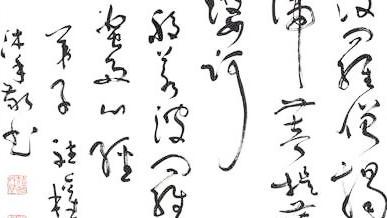 波羅僧揭
諦菩提薩
婆訶
般若波羅
蜜多心經
弟子
沐手敬書